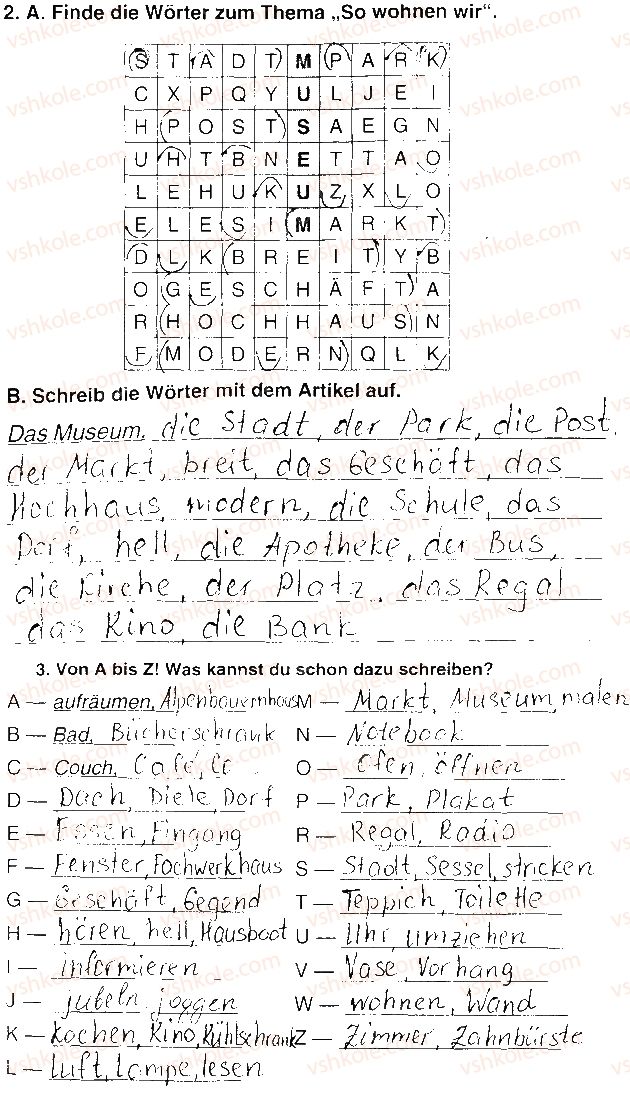 2. A. Finde die Wörter zum Thema „So wohnen wir“.
S T A D T M P A R K
C X P Q Y U L J E I
H P O S T S A E G N
U H T B N E T T A O
L E H U K U Z X L O
E L E S I M A R K T
D L K B R E I T Y B
O G E S C H Ä F T A
R H O C H H A U S N
F M O D E R N Q L K
B. Schreib die Wörter mit dem Artikel auf.
Das Museum, die Stadt, der Park, die Post,
der Markt, breit, das Geschäft, das
Hochhaus, modern, die Schule, das
Dorf, hell, die Apotheke, der Bus,
die Kirche, der Platz, das Regal
das Kino, die Bank
3. Von A bis Z! Was kannst du schon dazu schreiben?
A — aufräumen, Alpenbauernhaus
B — Bad, Bücherschrank
C — Couch, Café,
D — Dach, Diele, Dorf
E — Essen, Eingang
F — Fenster, Fachwerkhaus
G — Geschäft, Gegend
H — hören, hell, Hausboot
I — informieren
J — jubeln, joggen
K — kochen, Kino, Kühlschrank
L — Luft, Lampe, lesen
M — Markt, Museum, malen
N — Notebook
O — Ofen, öffnen
P — Park, Plakat
R — Regal, Radio
S — Stadt, Sessel, stricken
T — Teppich, Toilette
U — Uhr, umziehen
V — Vase, Vorhang
W — wohnen, Wand
Z — Zimmer, Zahnbürste
vshkole.com